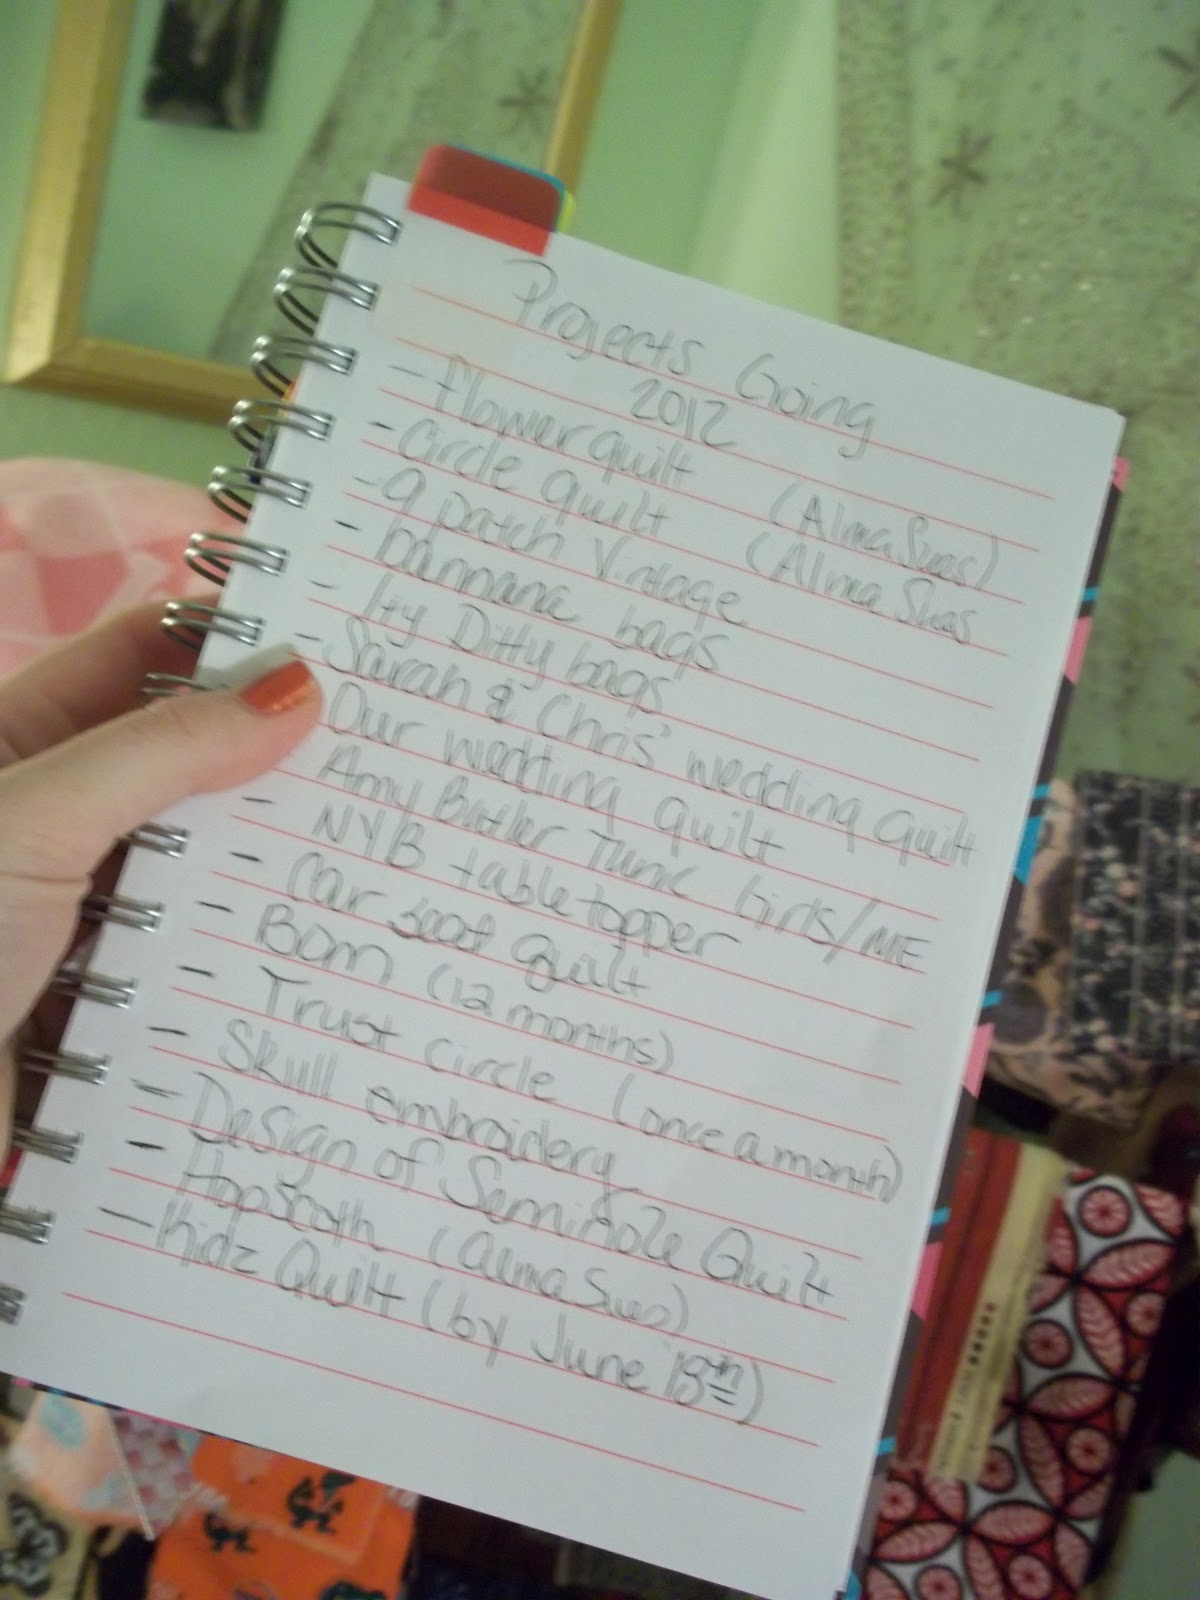 Projects Going
2012
- Flower quilt (Alma Sues)
- Circle quilt (Alma Sues
- 9 patch Vintage
- bannana bags
- Ity Ditty bags
- Sarah & Chris' wedding Quilt
Our wedding quilt
Amy Butler Tunic Girls/ME
- NYB table topper
- Car seat Quilt
- BOM (12 months)
- Trust Circle (once a month)
- Skull embroidery
- Design of Seminole Quilt
- Hopscoth (Alma Sues)
- Kidz Quilt (by June 18th)